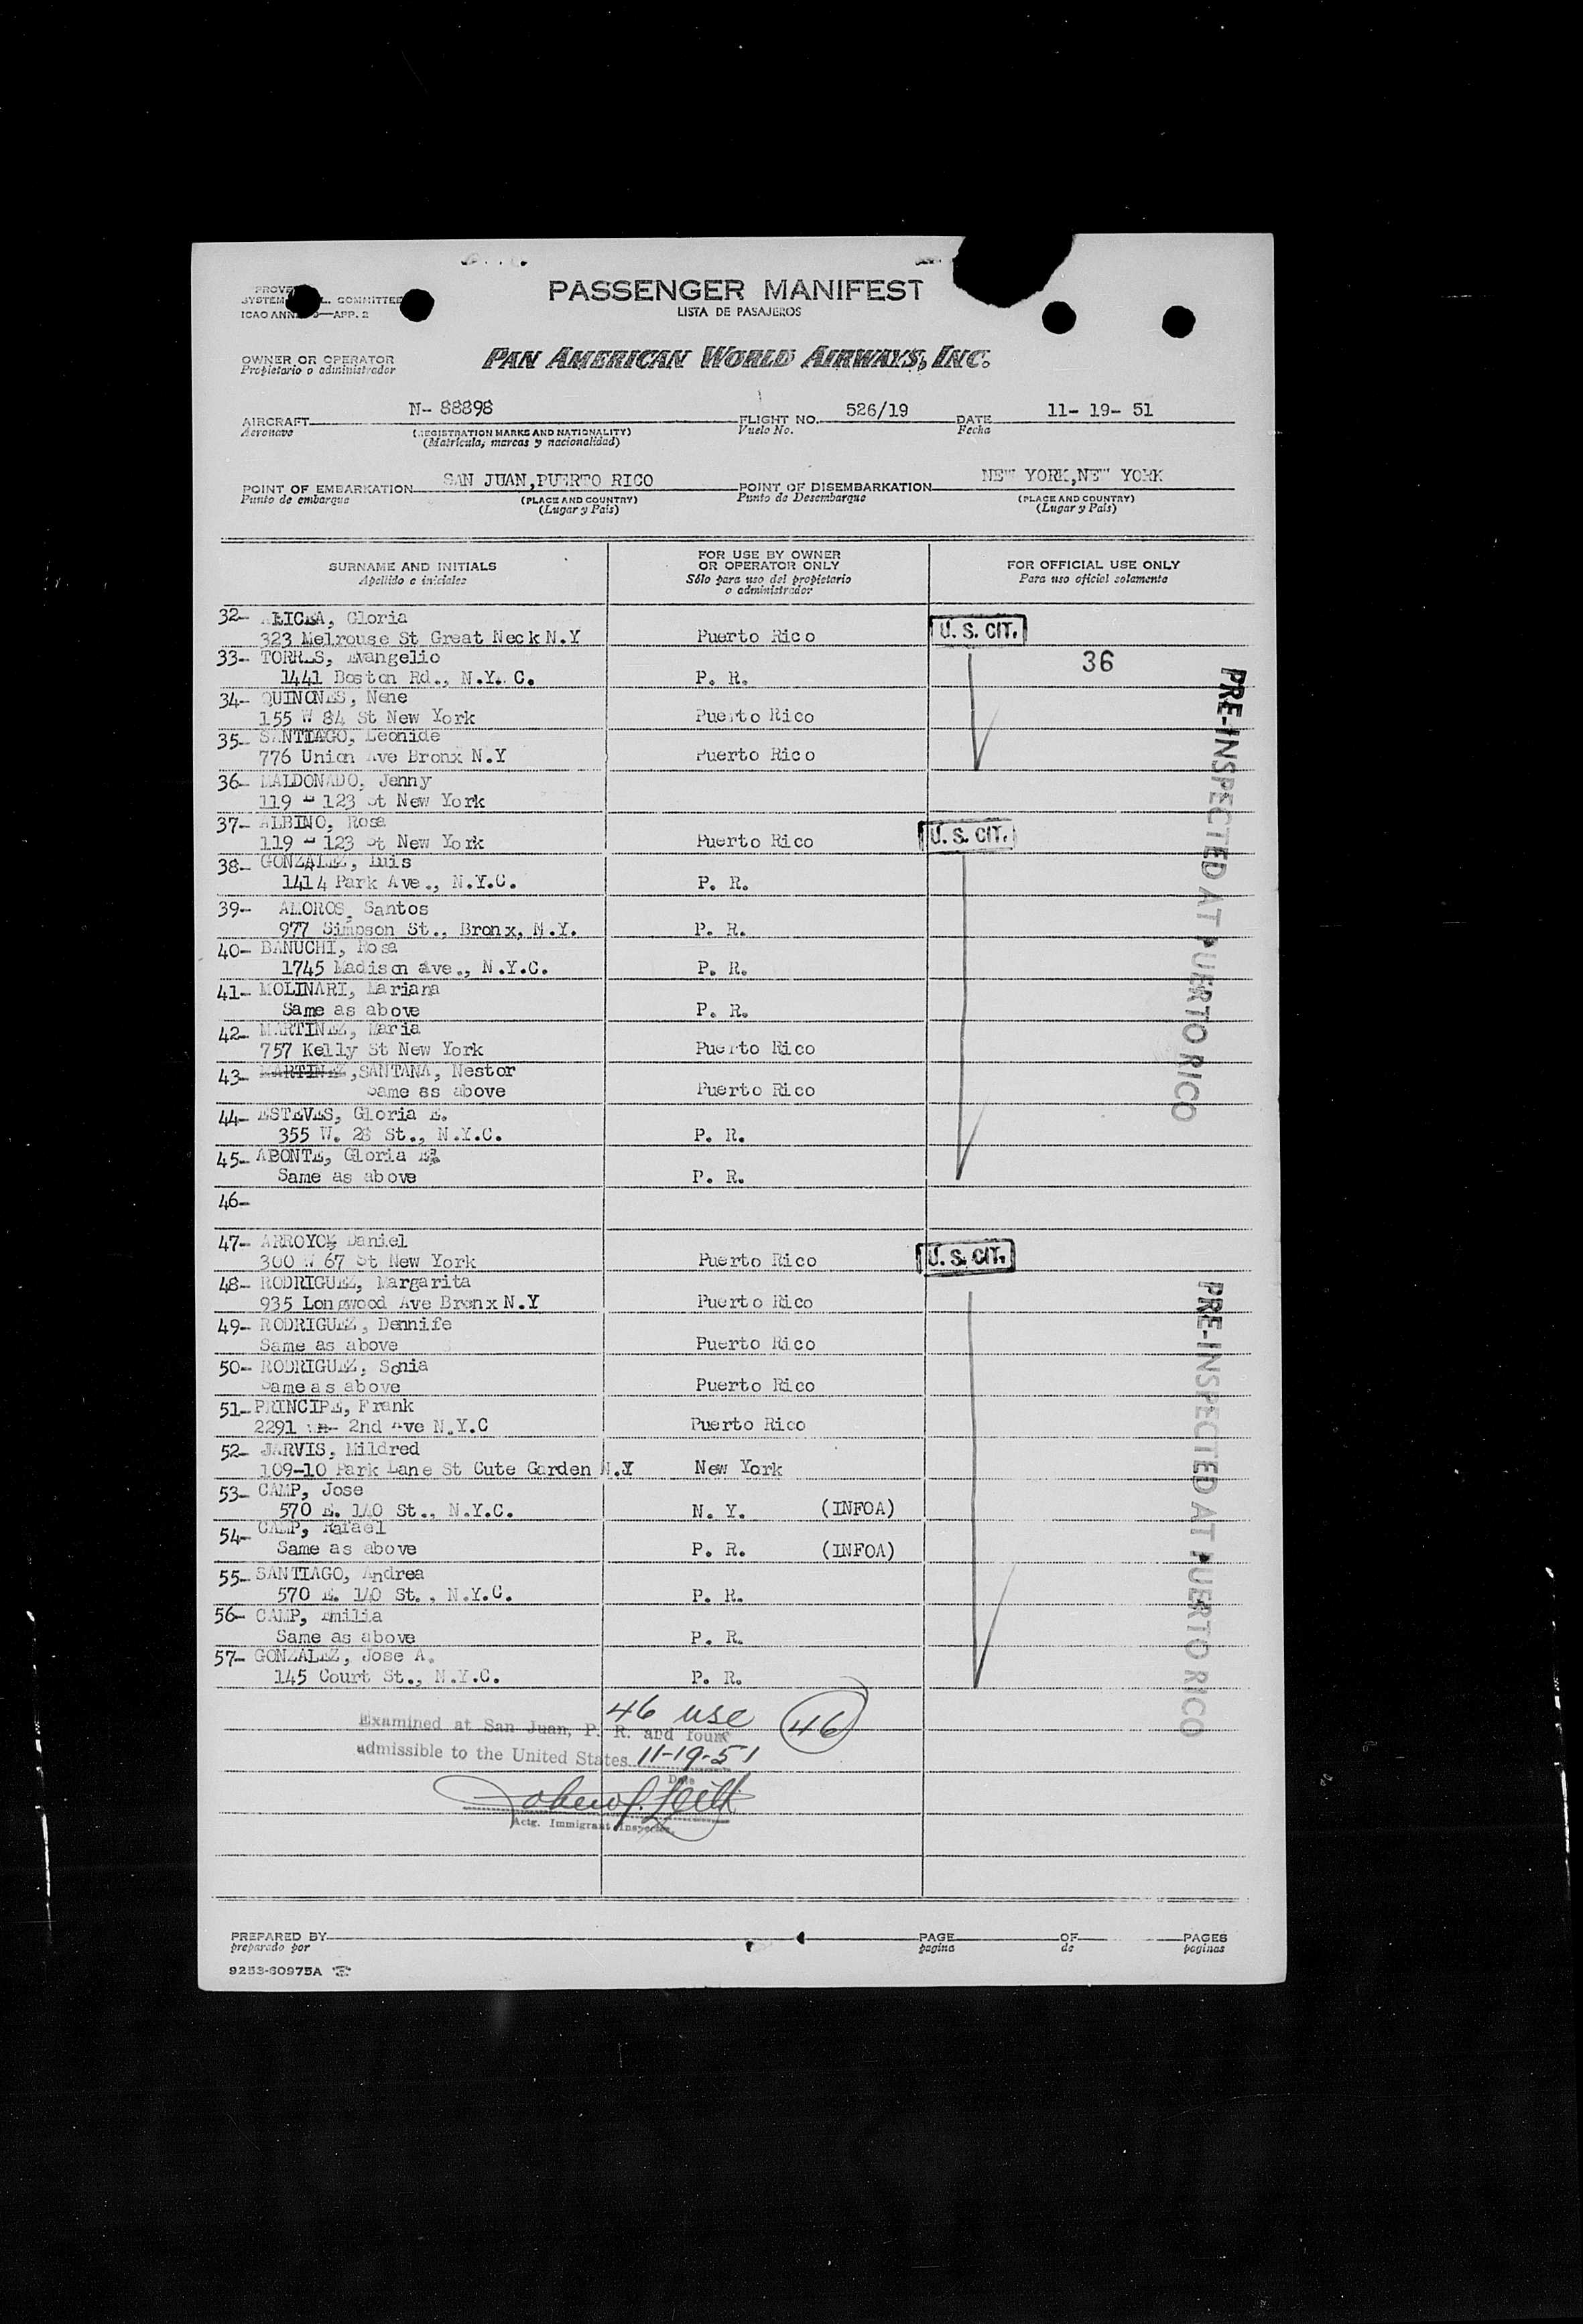 PASSENGER MANIFEST
LISTA DE PASAJEROS
COMMITTEE
ICAO ANN —APP. 2
OWNER OR OPERATOR
Propietario o administrador
PAN AMERICAN WORLD AIRWAYS, INC.
AIRCRAFT N- 88898 FLIGHT NO. 526/19 DATE 11- 19- 51
Aeronave (REGISTRATION MARKS AND NATIONALITY) Vuelo No. Fecha
(Matrícula, marcas y nacionalidad)
POINT OF EMBARKATION SAN JUAN,PUERTO RICO POINT OF DISEMBARKATION NEW YORK,NEW YORK
Punto de embarque (PLACE AND COUNTRY) Punto de Desembarque (PLACE AND COUNTRY)
(Lugar y País) (Lugar y País)
SURNAME AND INITIALS FOR USE BY OWNER OR OPERATOR ONLY FOR OFFICIAL USE ONLY
Apellido e iniciales Sólo para uso del propietario o administrador Para uso oficial solamente
32- ALICEA, Gloria
323 Melrouse St Great Neck N.Y Puerto Rico U. S. CIT.
33- TORRES, Evangelio 36
1441 Boston Rd., N.Y. C. P. R.
34- QUINONES, Nene
155 W 84 St New York Puerto Rico
35- SANTIAGO, Leonide
776 Union Ave Bronx N.Y Puerto Rico
36- MALDONADO, Jenny
119 E 123 St New York
37- ALBINO, Rosa
119 E 123 St New York Puerto Rico U. S. CIT.
38- GONZALEZ, Luis
1414 Park Ave., N.Y.C. P. R.
39- ALOROS, Santos
977 Simpson St., Bronx, N.Y. P. R.
40- BANUCHI, Rosa
1745 Madison Ave., N.Y.C. P. R.
41- MOLINARI, Mariana
Same as above P. R.
42- MARTINEZ, Maria
757 Kelly St New York Puerto Rico
43- MARTINEZ,SANTANA, Nestor
Same as above Puerto Rico
44- ESTEVES, Gloria E.
355 W. 28 St., N.Y.C. P. R.
45- APONTE, Gloria
Same as above P. R.
46-
47- ARROYO, Daniel
300 W 67 St New York Puerto Rico U. S. CIT.
48- RODRIGUEZ, Margarita
935 Longwood Ave Bronx N.Y Puerto Rico
49- RODRIGUEZ, Dennife
Same as above Puerto Rico
50- RODRIGUEZ, Sonia
Same as above Puerto Rico
51- PRINCIPE, Frank
2291 2nd Ave N.Y.C Puerto Rico
52- JARVIS, Mildred
109-10 Park Lane St Cute Garden N.Y New York
53- CAMP, Jose
570 E. 140 St., N.Y.C. N. Y. (INFOA)
54- CAMP, Rafael
Same as above P. R. (INFOA)
55- SANTIAGO, Andrea
570 E. 140 St., N.Y.C. P. R.
56- CAMP, Emilia
Same as above P. R.
57- GONZALEZ, Jose A.
145 Court St., N.Y.C. P. R.
PRE-INSPECTED AT PUERTO RICO
PRE-INSPECTED AT PUERTO RICO
46 usc 46
Examined at San Juan, P. R. and found
admissible to the United States 11-19-51
Date
Actg. Immigrant Inspector.
PREPARED BY PAGE OF PAGES
preparado por página de páginas
9253-60975A